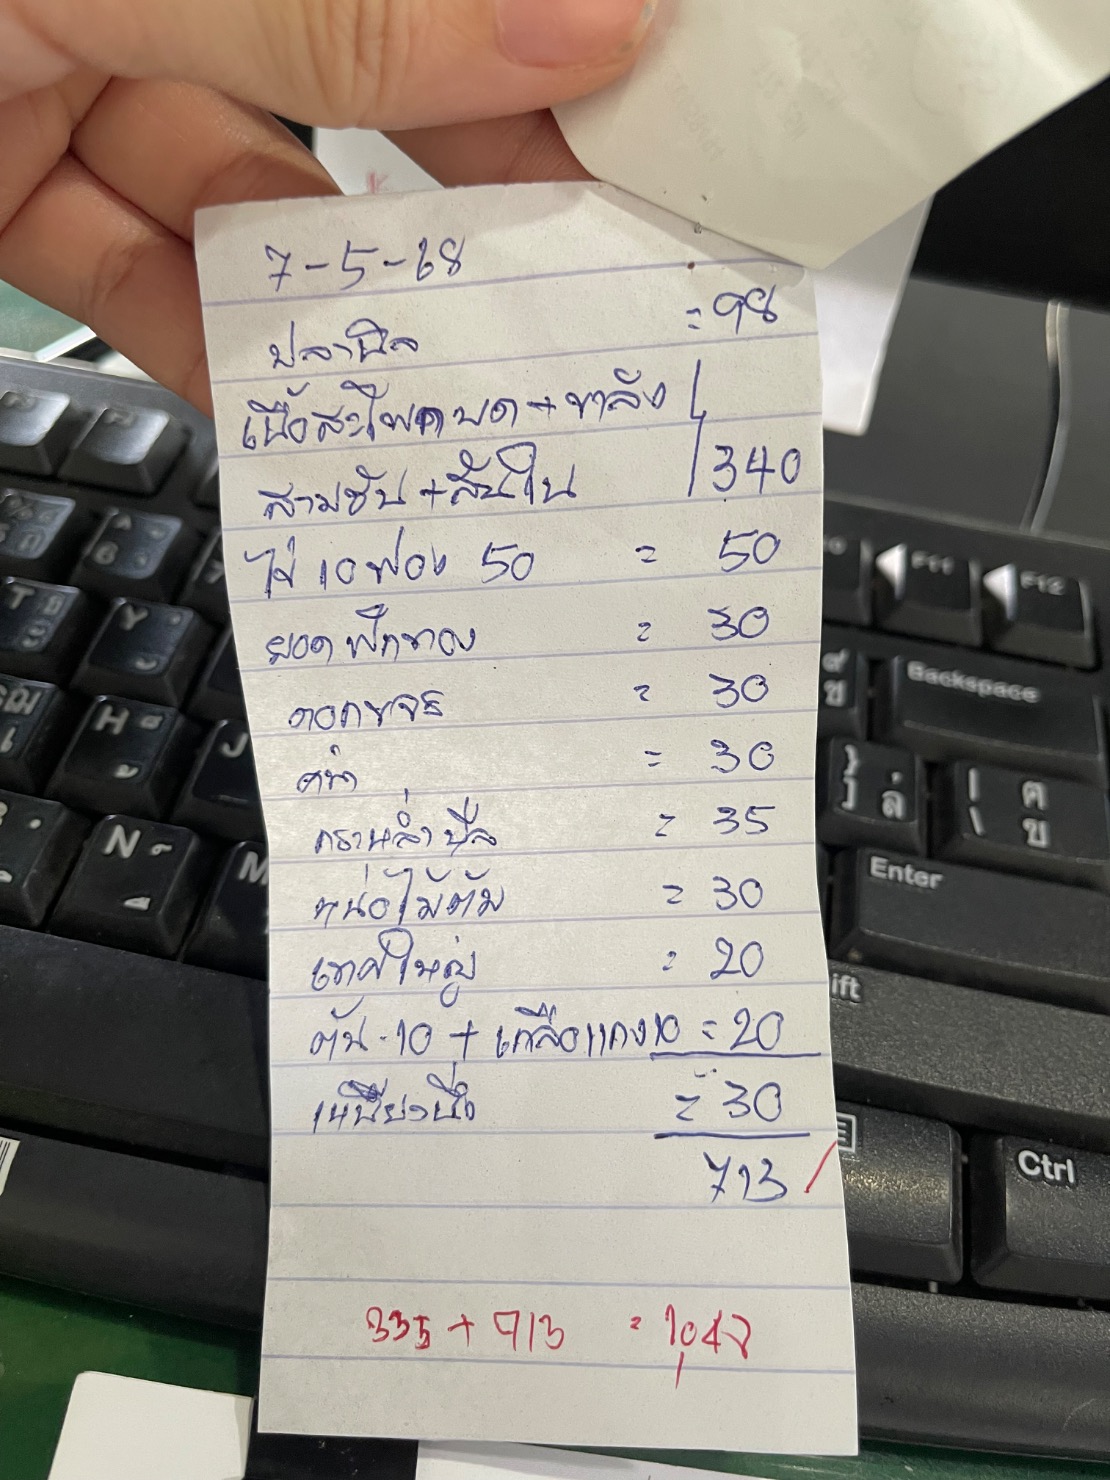 7-5-68
ปลานิล = 98
เนื้อสะโพกบด + ขาลัง
สามชั้น + สันใน 340
ไข่ 10 ฟอง 50 = 50
ยอดฟักทอง = 30
ดอกขจร = 30
คน้า = 30
กะหล่ำปลี = 35
หน่อไม้ต้ม = 30
เทศใหญ่ = 20
ต้น.10 + เกลือแกง 10 = 20
เหนียวนึ่ง = 30
713
335 + 713 = 1048
F11
F12
Backspace
Enter
ift
Ctrl
T
Y
H
J
N
M